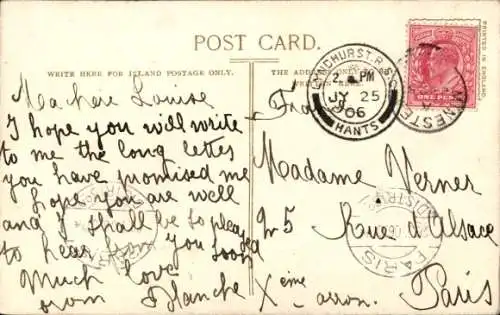 POST CARD.
WRITE HERE FOR INLAND POSTAGE ONLY.
THE ADDRESS ONLY TO BE
WRITTEN HERE.
PRINTED IN ENGLAND
LYNDHURST. R.S.O.
2 PM
JY 25
06
HANTS
ONE PENNY
PARIS
Ma chère Louise
I hope you will write
to me the long letter
you have promised me
hope you are well
and I shall be so pleased
to hear from you soon
Much love
from Blanche
Madame Verner
25 Rue d'Alsace
Xème arron.
Paris